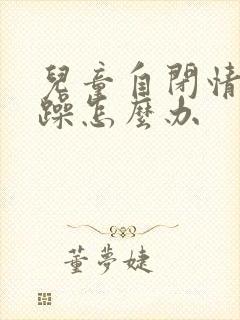 兒童自閉情
躁怎麼办
董夢婕